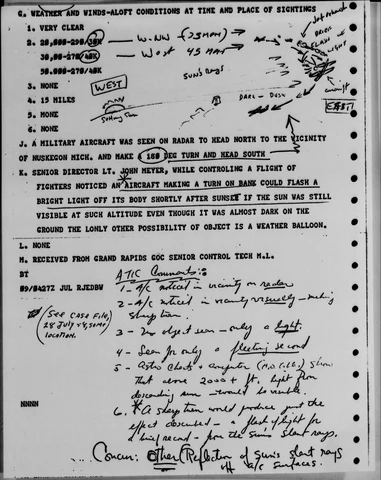 G. WEATHER AND WINDS-ALOFT CONDITIONS AT TIME AND PLACE OF SIGHTINGS
1. VERY CLEAR
2. 20,000-290/38K W.NW (23 MPH)
30,00-270/40K West 45 MPH
50,000-270/40K
3. NONE WEST Sun's rays
4. 15 MILES DARK - DUSK
5. NONE Setting Sun EAST
6. NONE
J. A MILITARY AIRCRAFT WAS SEEN ON RADAR TO HEAD NORTH TO THE VICINITY
OF NUSKEGON MICH. AND MAKE A 180 DEG TURN AND HEAD SOUTH
K. SENIOR DIRECTOR LT. JOHN MEYER, WHILE CONTROLING A FLIGHT OF
FIGHTERS NOTICED AN AIRCRAFT MAKING A TURN ON BANK COULD FLASH A
BRIGHT LIGHT OFF ITS BODY SHORTLY AFTER SUNSET IF THE SUN WAS STILL
VISIBLE AT SUCH ALTITUDE EVEN THOUGH IT WAS ALMOST DARK ON THE
GROUND THE LONLY OTHER POSSIBILITY OF OBJECT IS A WEATHER BALLOON.
L. NONE
M. RECEIVED FROM GRAND RAPIDS GOC SENIOR CONTROL TECH M.L.
BT ATIC Comments:
09/0427Z JUL RJEDBW 1 - A/C noticed in vicinity on radar
(See CASE File, 2 - A/C noticed in vicinity visually - making
28 July 58, same sharp turn.
location.) 3 - No object seen - only a light.
4 - Seen for only a fleeting second
5 - Astro Charts & Computer show
that above 2000 + ft. light from
descending sun would be visible.
NNNN 6. * A sharp turn would produce just the
effect described - a flash of light for
a brief second - from the sun's slant rays.
... Concu: Other (Reflection of sun's slant rays
off a/c surfaces.